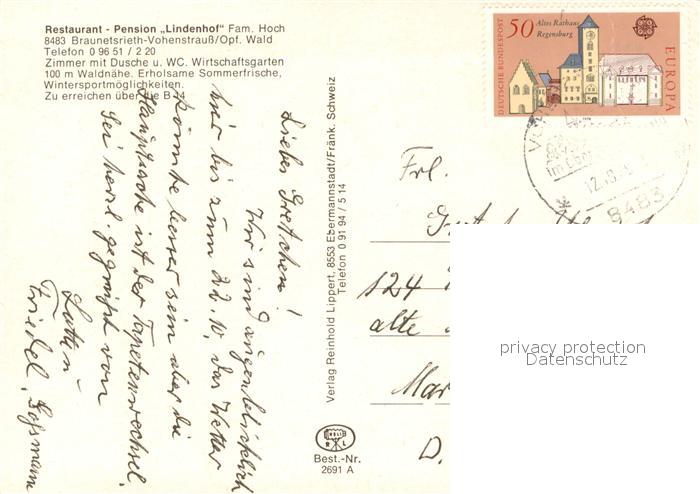 Restaurant - Pension „Lindenhof“ Fam. Hoch
8483 Braunetsrieth-Vohenstrauß/Opf. Wald
Telefon 0 96 51 / 2 20
Zimmer mit Dusche u. WC. Wirtschaftsgarten
100 m Waldnähe. Erholsame Sommerfrische,
Wintersportmöglichkeiten.
Zu erreichen über die B
Liebes Gretchen!
Wir sind augenblicklich
hier bis zum 22.10. das Wetter
könnte besser sein aber die
Hauptsache ist der Tapetenwechsel.
Sei herzl. gegrüßt von
Friedel
Verlag Reinhold Lippert, 8553 Ebermannstadt/Fränk. Schweiz
Telefon 0 91 94 / 5 14
R L
Best.-Nr.
2691 A
DEUTSCHE BUNDESPOST
50
Altes Rathaus
Regensburg
EUROPA
8483
Frl.
124
alte
Mar
D.
privacy protection
Datenschutz